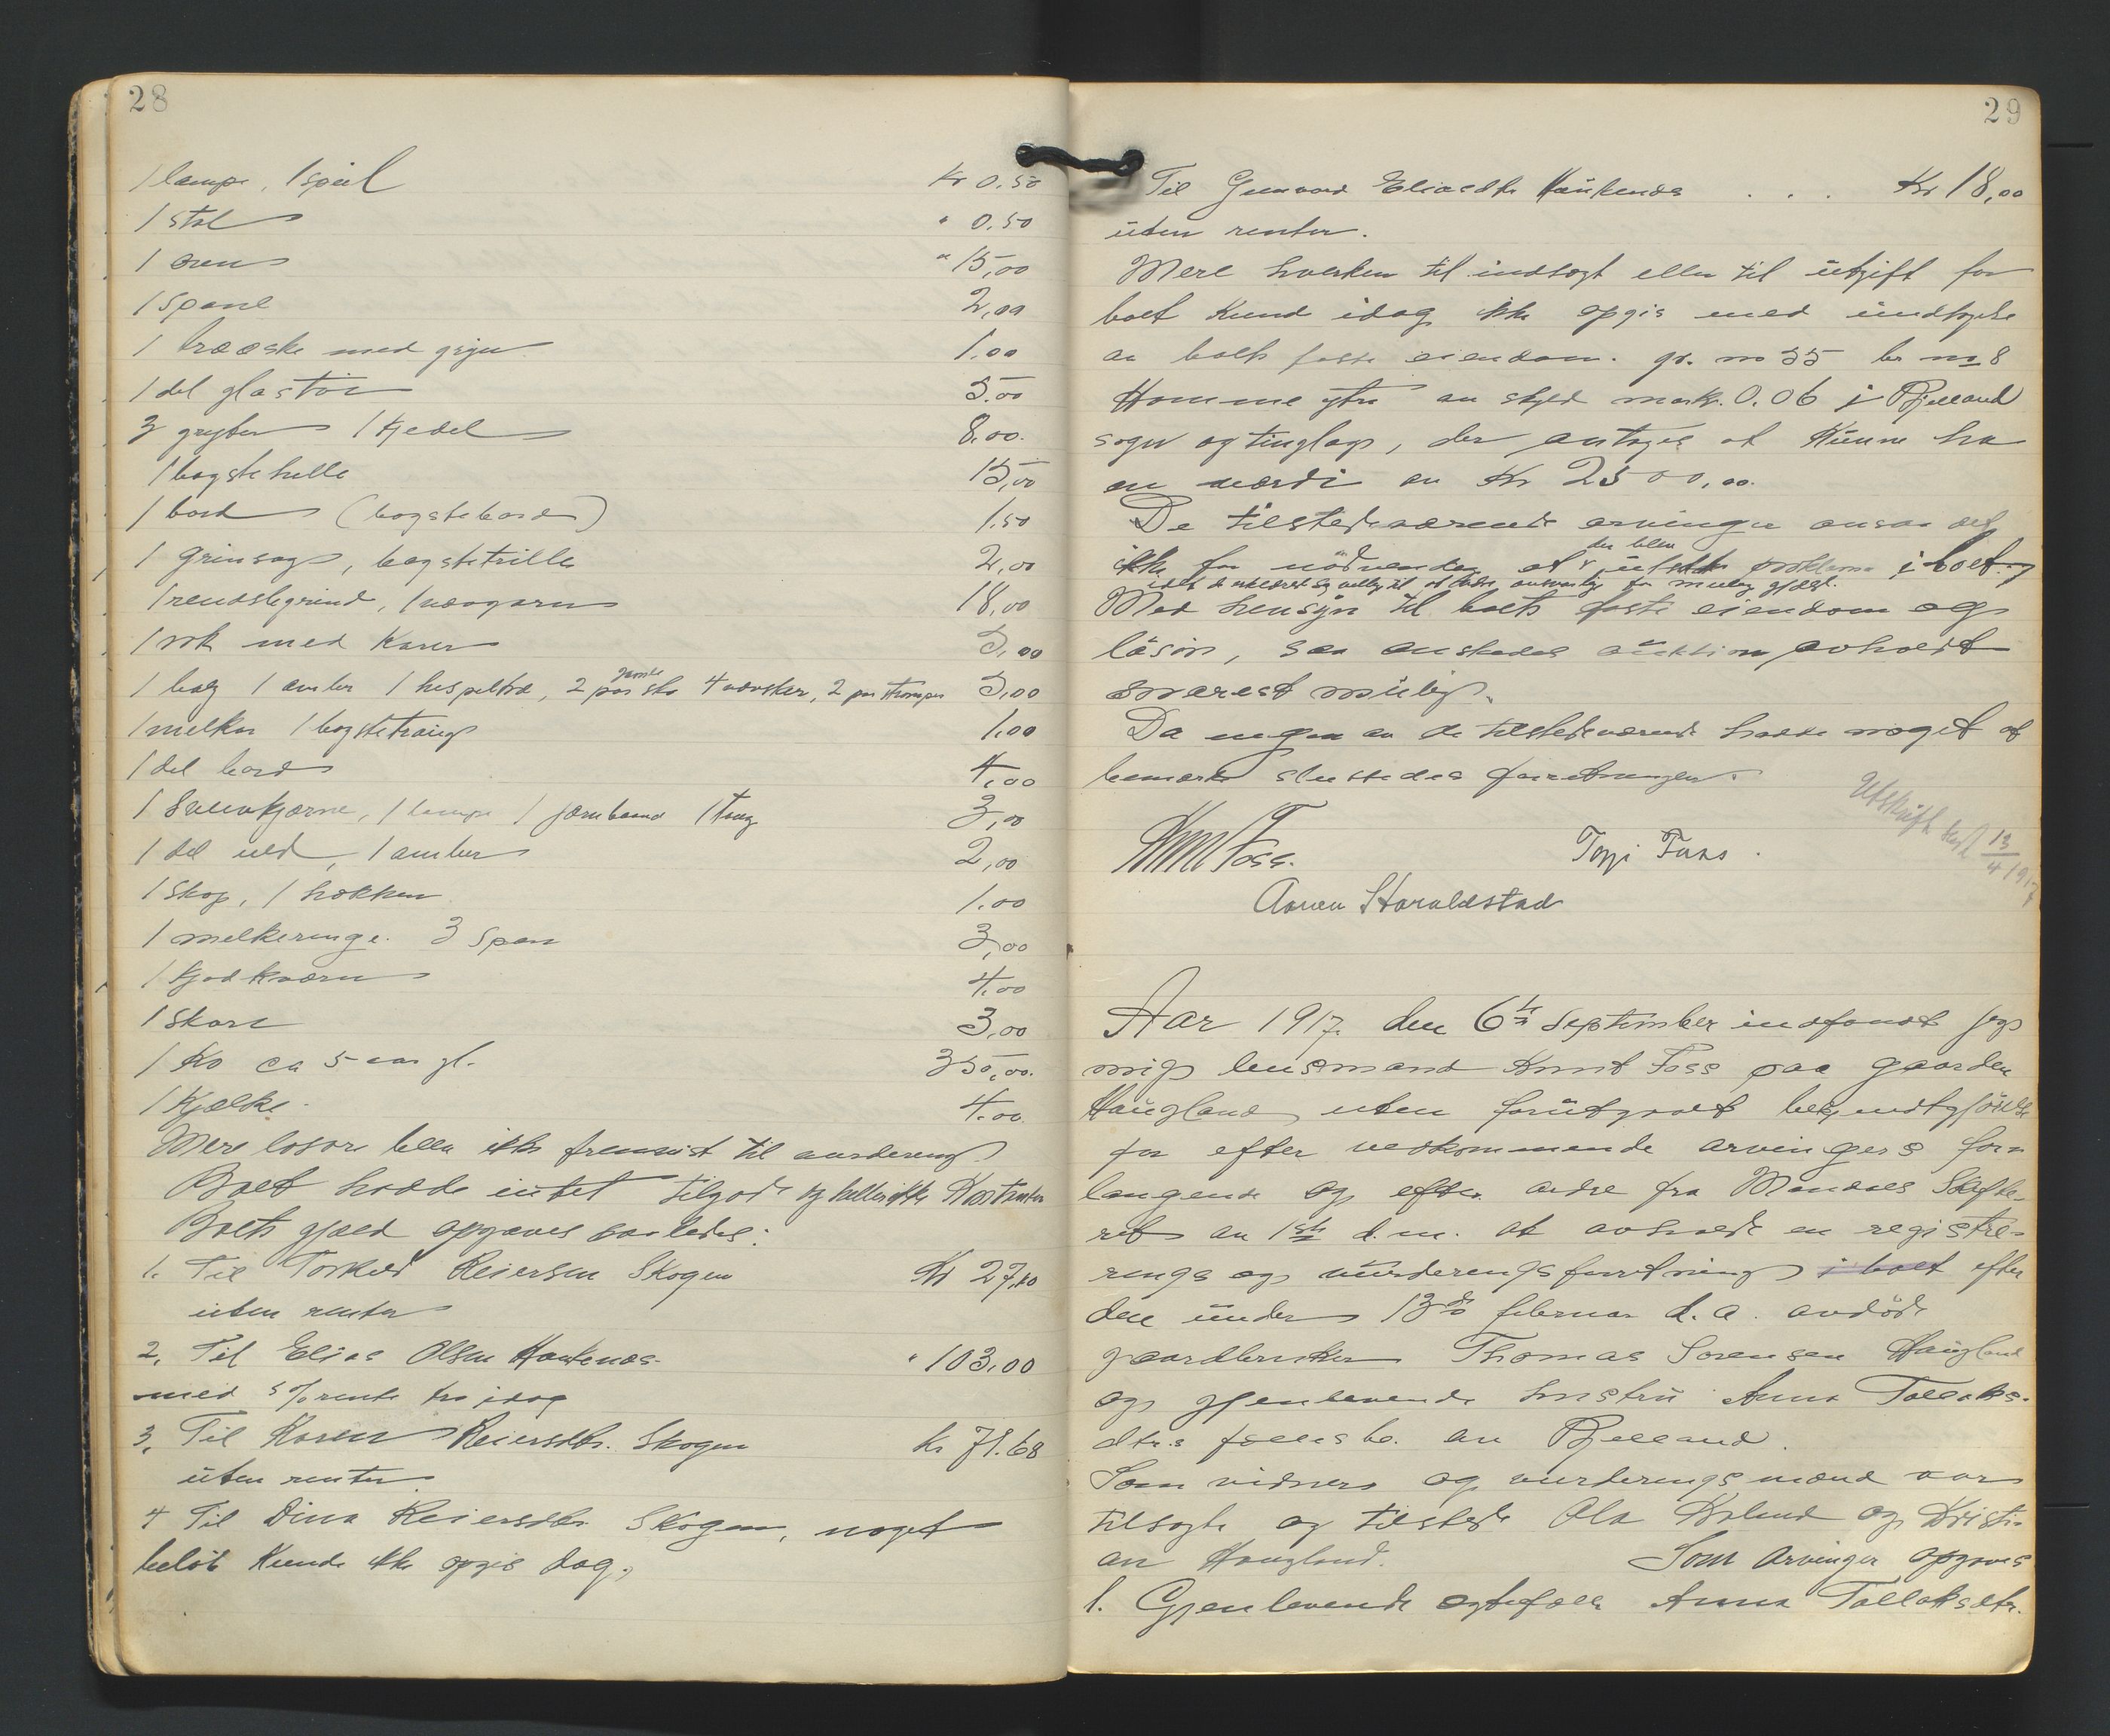 28
1 lampe, 1 speil Kr 0.50
1 stol " 0.50
1 oven " 15,00
1 spane 2,00
1 træeske med gryn 1.00
1 del glastöi 5.00
3 gryter 1 kjedel 8,00.
1 bagstehelle 15,00
1 bord (bagstebord) 1.50
1 grinsag, bagstetrille 2,00
1 rendslegrind, 1 vævgarn 18,00
1 rok med Karer 5,00
1 balg 1 amber 1 hespeltræ, 2 par gamle sko 4 vævsker, 2 par strømper 5,00
1 melkar 1 bagstetraug 1.00
1 del bord 4,00
1 Svinekjærne, 1 lampe 1 jernband 1 tang 3,00
1 del uld, 1 amber 2,00
1 skap, 1 krakken 1.00
1 melkeringe. 3 Span 3,00
1 kjødkværn 4.00
1 skare 3,00
1 Ko ca 5 aar gl. 350,00.
1 kjælke. 4.00
Mere løsøre blev ikke fremvist til vurdering.
Boet hadde intet tilgode og heller ikke Kontanter
Boets gjæld opgaves saaledes:
1. Til Torkild Reiersen Skogen Kr 27,00
uten renter
2. Til Elias Olsen Haukenæs. " 103,00
med 5 % rente fra idag
3. Til Karen Reiersdtr. Skogen Kr 71.68
uten renter.
4 Til Dina Reiersdtr. Skogen, noget
beløb kunde ikke opgis dag.,
29
Til Gunvard Eliasdtr Haukenæs . . . Kr 18,00
uten renter.
Mere hverken til indtægt eller til utgift for
boet kunde idag ikke opgis med undtagelse
av boets faste eiendom. gr. no 35 br no 8
Homme ytre av skyld mark. 0.06 i Bjelland
sogn og tinglag, der antages at kunne ha
en værdi av Kr 2500,00.
De tilstedeværende arvinger ansaa det
ikke for nödvendig at der blev utstedt proklama i boet,
idet de erklæret sig villig til at være ansvarlig for mulig gjæld.
Med hensyn til boets faste eiendom og
läsöre, saa önskedes auktion avholdt
snarest mulig.
Da ingen av de tilstedeværende hadde noget at
bemærke sluttedes forretningen.
Utskrift send 13/4 1917
Knut Foss. Torji Fuas.
Aanen Haraldstad
Aar 1917 den 6te September indfandt jeg
mig lensmand Knut Foss paa gaarden
Haugland uten forutgaaet bekjendtgjörelse
for efter vedkommende arvingers for-
langende og efter ordre fra Mandals Skifte-
ret av 1ste d.m. at avholde en registre-
rings og vurderingsforretning i boet efter
den under 13de februar d.a. avdöde
gaardbruker Thomas Sorensen Haugland
og gjenlevende hustru Anna Tallaks-
dtr.s fællesbo. av Bjelland.
Som vidner og vurderingsmænd var
tilsagte og tilstede Ola Røland og Kristi-
an Haugland. Som arvinger opgaves
1. Gjenlevende egtefælle Anna Tallaksdtr.